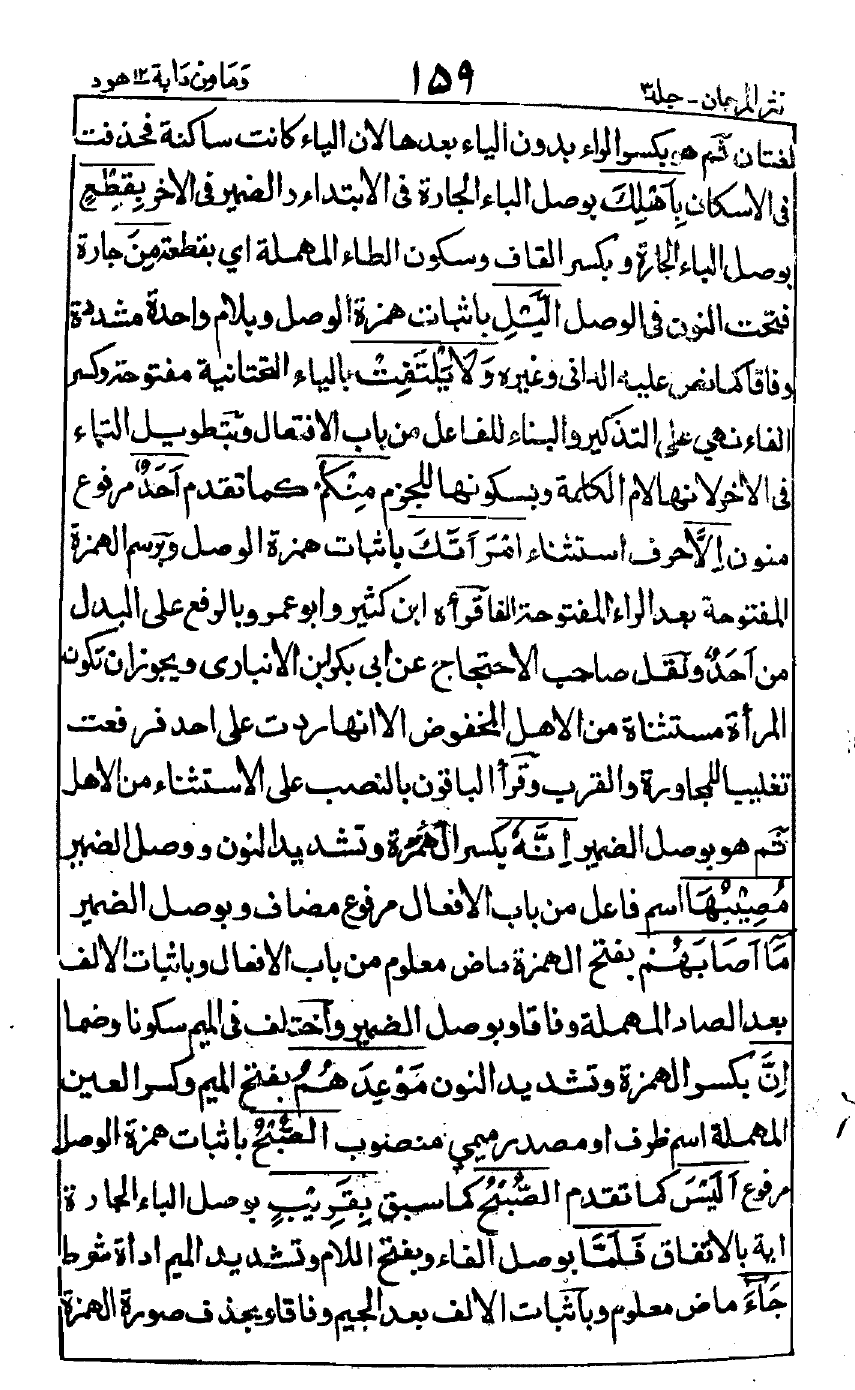 نثر المرجان - جلد٣ ١٥٩ وَمَا مِنْ دَابة ١٢ هود
لغتان ثم هو بكسر الراء بدون الياء بعدها لان الياء كانت ساكنة فحذفت
فى الاسكان بِاَهْلِكَ بوصل الباء الجارة فى الابتداء والضمير فى الاخر بِقِطْعٍ
بوصل الباء الجارة وبكسر القاف وسكون الطاء المهملة اي بقطعة مِنَ جارة
فتحت النون فى الوصل الَّيْلِ باثبات همزة الوصل وبلام واحدة مشددة
وفاقا كما نص عليه الدانى وغيره وَلَا يَلْتَفِتْ بالياء التحتانية مفتوحة وكسر
الفاء نهي على التذكير والبناء للفاعل من باب الافتعال وبتطويل التاء
فى الاخر لانها لام الكلمة وبسكونها للجزم مِنْكُمْ كما تقدم اَحَدٌ مرفوع
منون اِلَّا حرف استثناء امْرَاَتَكَ باثبات همزة الوصل وبرسم الهمزة
المفتوحة بعد الراء المفتوحة الفا قرأه ابن كثير وابو عمرو بالرفع على البدل
من اَحَدٌ ونقل صاحب الاحتجاج عن ابى بكر ابن الانبارى ويجوز ان تكون
المرأة مستثناة من الاهل المخفوض الا انها ردت على احد فرفعت
تغليبا للمجاورة والقرب وقرأ الباقون بالنصب على الاستثناء من الاهل
ثم هو بوصل الضمير اِنَّهٗ بكسر الهمزة وتشديد النون ووصل الضمير
مُصِيْبُهَا اسم فاعل من باب الافعال مرفوع مضاف وبوصل الضمير
مَآ اَصَابَهُمْ بفتح الهمزة ماض معلوم من باب الافعال وباثبات الالف
بعد الصاد المهملة وفاقا وبوصل الضمير واختلف فى الميم سكونا وضما
اِنَّ بكسر الهمزة وتشديد النون مَوْعِدَهُمُ بفتح الميم وكسر العين
المهملة اسم ظرف او مصدر ميمي منصوب الصُّبْحُ باثبات همزة الوصل
مرفوع اَلَيْسَ كما تقدم الصُّبْحُ كما سبق بِقَرِيْبٍ بوصل الباء الجارة
اية بالاتفاق فَلَمَّا بوصل الفاء وبفتح اللام وتشديد الميم اداة شرط
جَآءَ ماض معلوم وباثبات الالف بعد الجيم وفاقا وبحذف صورة الهمزة